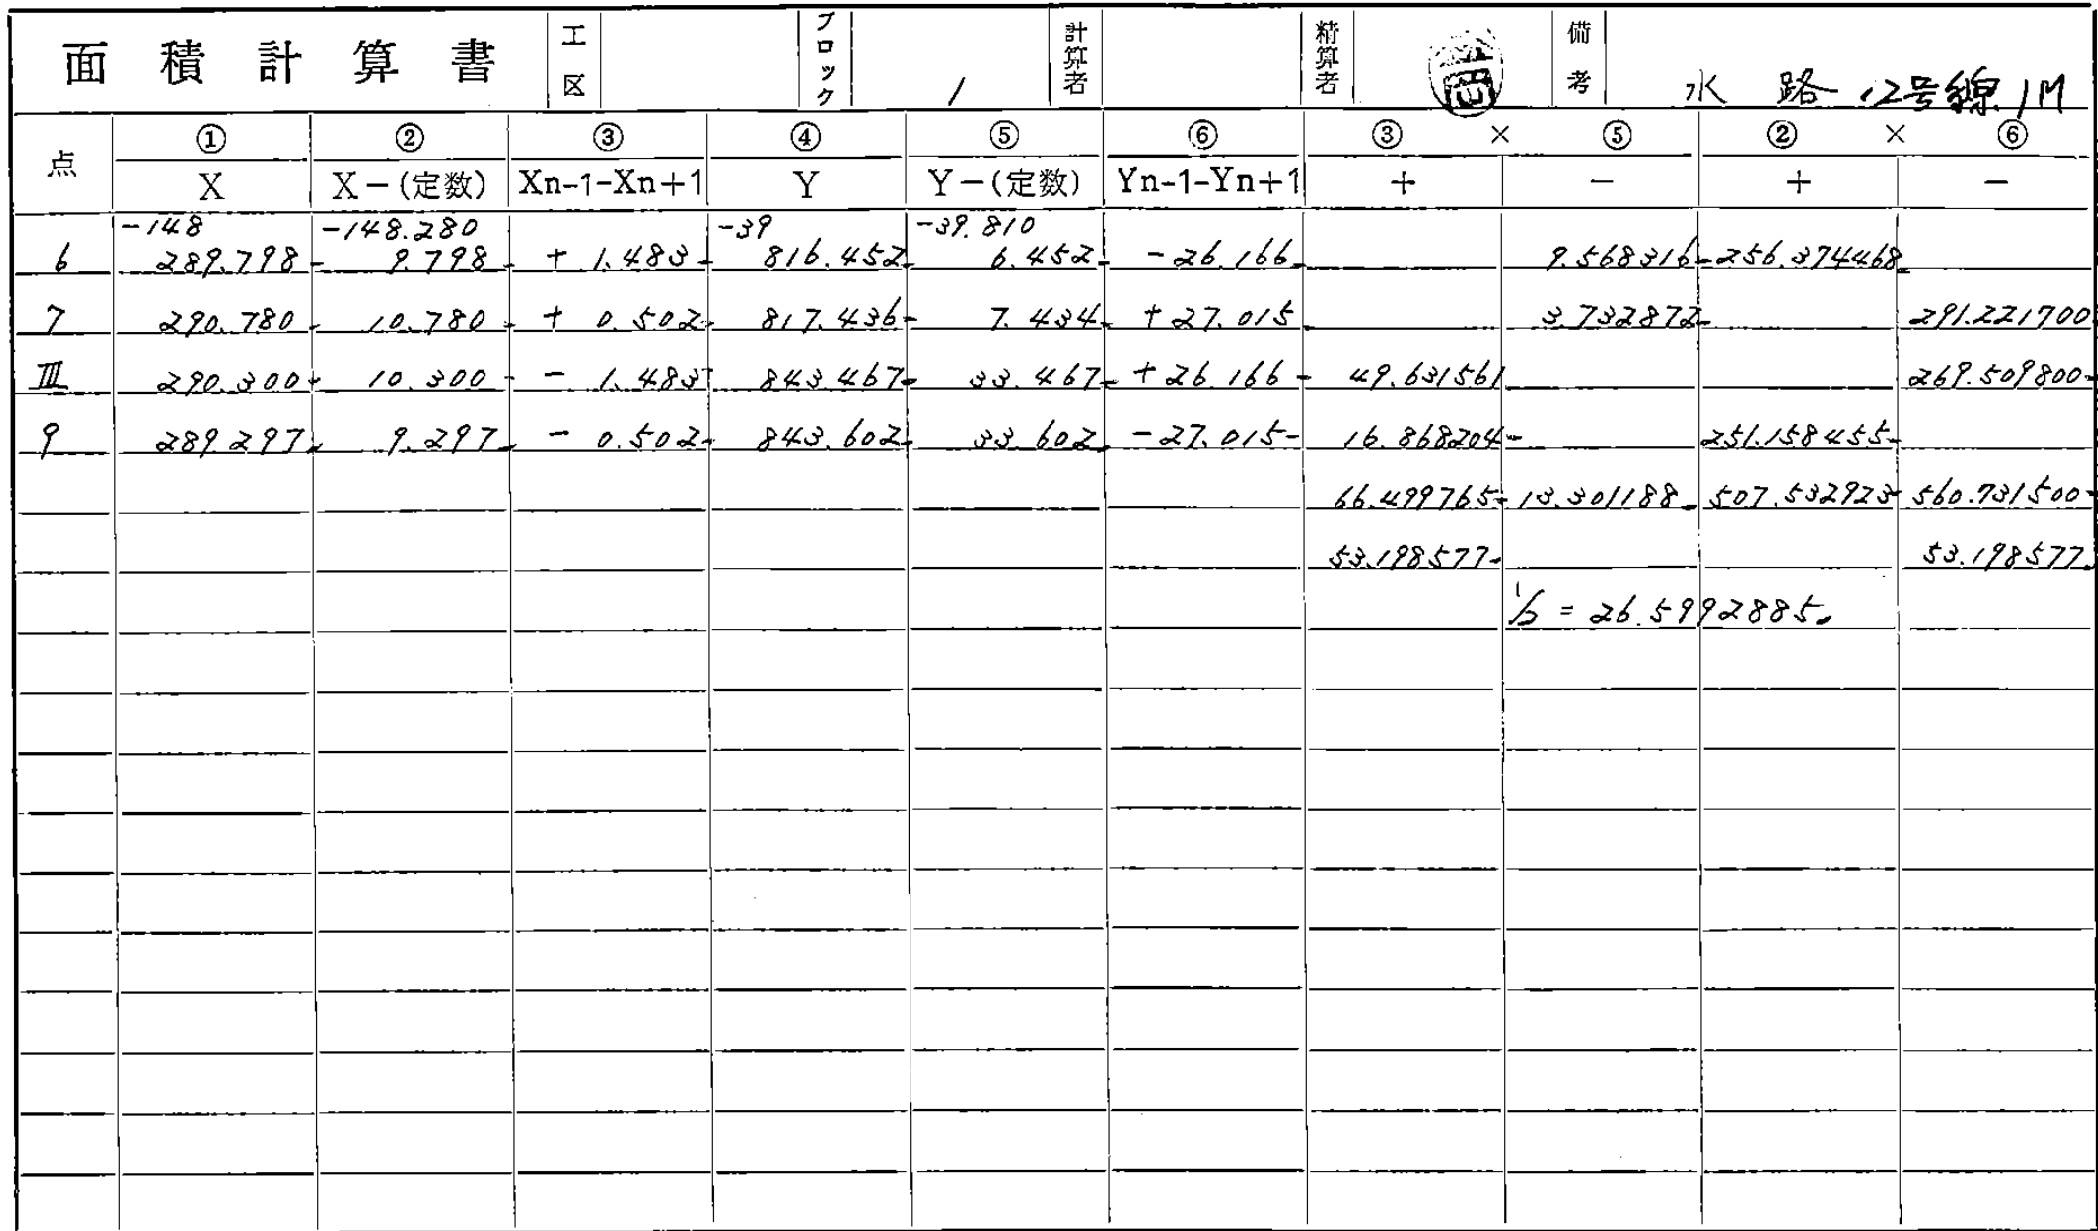 面積計算書 工区 ブロック 1 計算者 精算者 岡 備考 水路12号線1M
点 ① ② ③ ④ ⑤ ⑥ ③ × ⑤ ② × ⑥
X X−(定数) Xn-1-Xn+1 Y Y−(定数) Yn-1-Yn+1 + − + −
-148 -148.280 -39 -39.810
6 289.798 9.798 + 1.483 816.452 6.452 -26.166 9.568316 256.374468
7 290.780 10.780 + 0.502 817.436 7.434 +27.015 3.732872 291.221700
Ⅲ 290.300 10.300 - 1.483 843.467 33.467 +26.166 49.631561 269.509800
9 289.297 9.297 - 0.502 843.602 33.602 -27.015 16.868204 251.158455
66.499765 13.301188 507.532923 560.731500
53.198577 53.198577
1/2 = 26.5992885